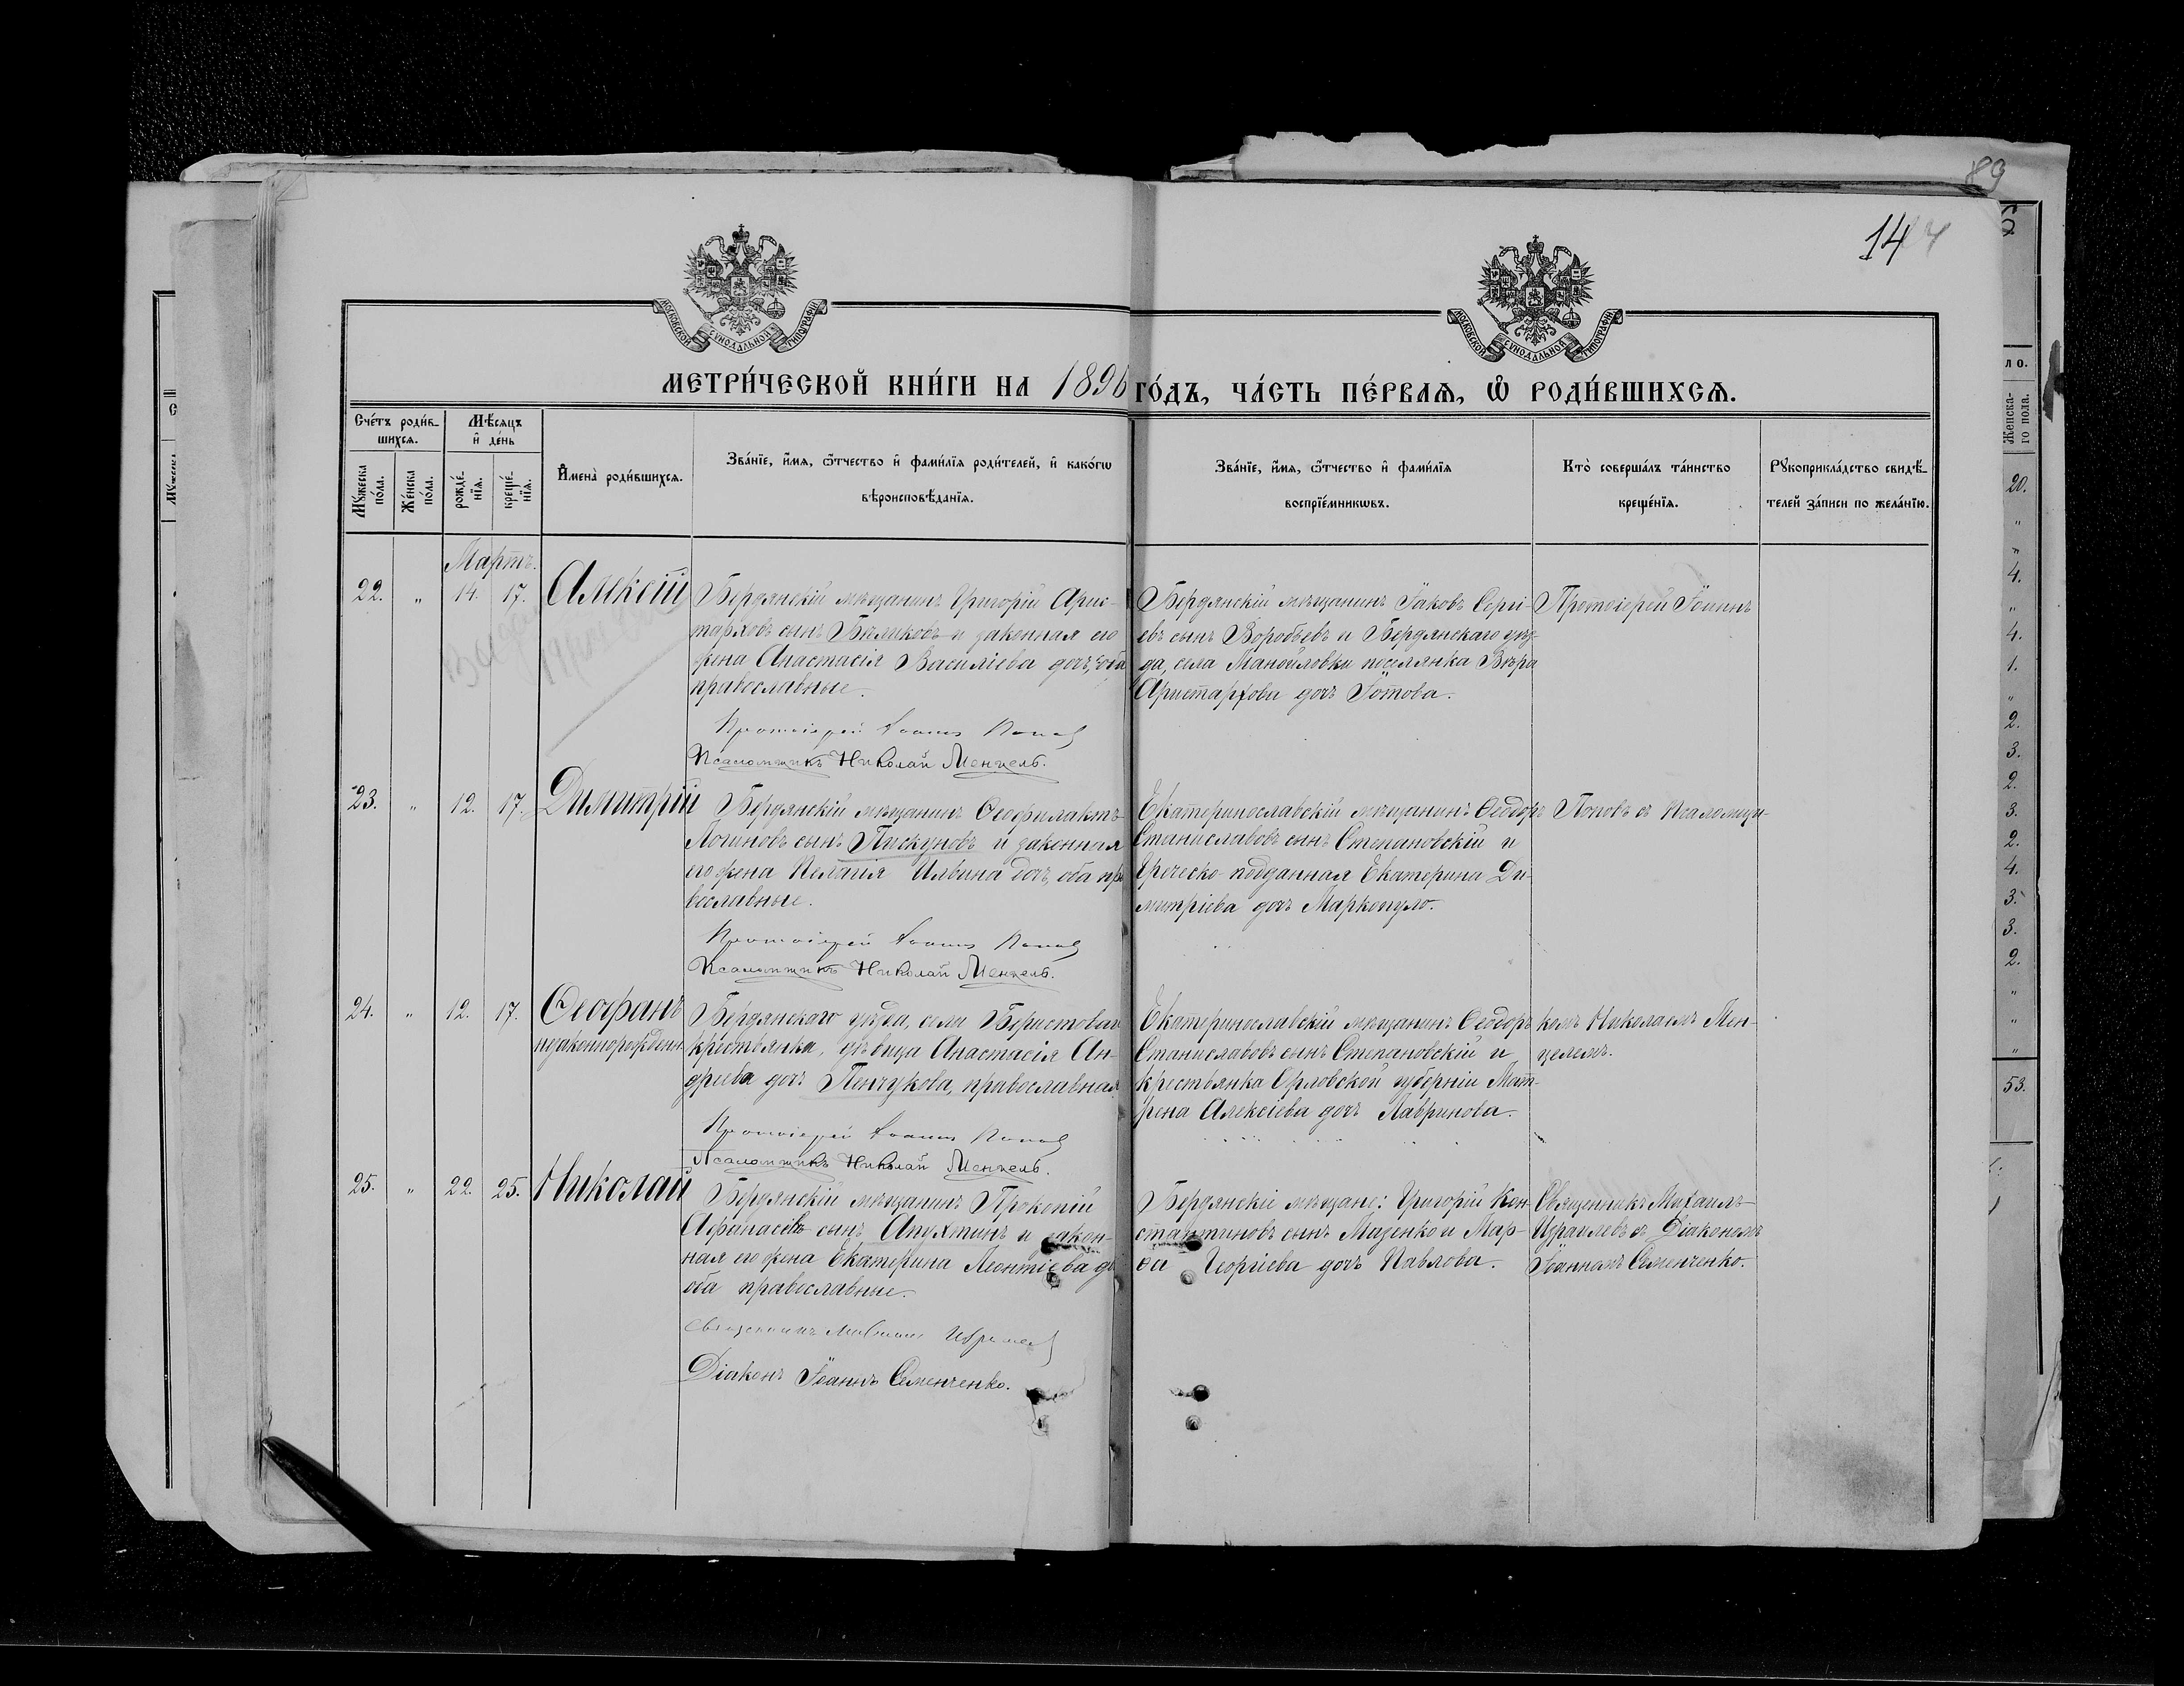 89
14
МОСКОВСКОЙ СѴНОДАЛЬНОЙ ТИПОГРАФІИ
МОСКОВСКОЙ СѴНОДАЛЬНОЙ ТИПОГРАФІИ
МЕТРИ́ЧЕСКОЙ КНИ́ГИ НА 1896 ГО́ДЪ, ЧА́СТЬ ПЕ́РВАѦ, Ѡ҆ РОДИ́ВШИХСѦ.
Сче́тъ роди́в-
шихсѧ.
Мѣ́сѧцъ
и҆ де́нь
Мꙋ́жеска
по́ла.
Же́нска
по́ла.
рожде́-
нїѧ.
креще́-
нїѧ.
И҆мена̀ роди́вшихсѧ.
Зва́нїе, и҆́мѧ, ѻ҆́тчество и҆ фами́лїѧ роди́телей, и҆ како́гѡ
вѣроисповѣ́данїѧ.
Зва́нїе, и҆́мѧ, ѻ҆́тчество и҆ фами́лїѧ
воспрїе́мникѡвъ.
Кто̀ соверша́лъ та́инство
креще́нїѧ.
Рꙋкоприкла́дство свидѣ́-
телей за́писи по жела́нїю.
Мартъ.
22. " 14. 17. Алексій
Бердянскій мѣщанинъ Григорій Арис-
тарховъ сынъ Бѣликовъ и законная его
жена Анастасія Василіева дочь, оба
православные.
Протоіерей Іоаннъ Попов
Псаломщикъ Николай Менцель.
Бердянскій мѣщанинъ Іаковъ Серги-
евъ сынъ Воробьевъ и Бердянскаго уѣз-
да, села Манойловки поселянка Вѣра
Аристархова дочь Готова.
Протоіерей Іоаннъ
23. " 12. 17. Димитрій
Бердянскій мѣщанинъ Ѳеофилактъ
Логиновъ сынъ Пискуновъ и законная
его жена Пелагія Ильина дочь, оба пра
вославные.
Протоіерей Іоаннъ Попов
Псаломщикъ Николай Менцель.
Екатеринославскій мѣщанинъ Ѳеодоръ
Станиславовъ сынъ Степановскій и
Греческо-подданная Екатерина Ди-
митріева дочь Маркопуло.
Поповъ съ Псаломщи-
24. " 12. 17. Ѳеофанъ
незаконнорожденн.
Бердянскаго уѣзда, села Берестоваго
крестьянка, дѣвица Анастасія Ан-
дреева дочь Пенчукова, православная
Протоіерей Іоаннъ Попов
Псаломщикъ Николай Менцель.
Екатеринославскій мѣщанинъ Ѳеодоръ
Станиславовъ сынъ Степановскій и
крестьянка Орловской губерніи Мат-
рона Алексіева дочь Лавринова.
комъ Николаемъ Мен-
целемъ.
25. " 22. 25. Николай
Бердянскій мѣщанинъ Прокопій
Аѳанасіевъ сынъ Апухтинъ и закон-
ная его жена Екатерина Леонтіева до
оба православные.
Священникъ Михаилъ Израилев
Діаконъ Іоаннъ Семенченко.
Бердянскіе мѣщане: Григорій Кон-
стантиновъ сынъ Мазенко и Мар-
ѳа Георгіева дочь Павлова.
Священникъ Михаилъ
Израилевъ съ Діакономъ
Іоанномъ Семенченко.
ло.
Женска-
го пола.
20.
"
"
4.
"
4.
1.
"
2.
3.
2.
3.
2.
4.
3.
3.
2.
"
"
"
53.